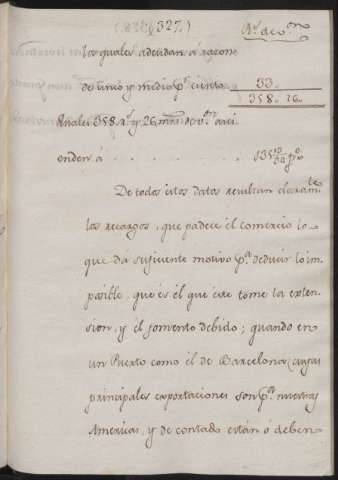 (327.)
R.ˢ de v.ᵒⁿ
las quales adeudan á razon
de cinco y medio p.ʳ ciento 33.
358. 26.
Reales 358 r.ˢ y 26 mrs. de v.ᵒⁿ asci
enden á . . . . . . .
De todos éstos datos resultan claram.ᵗᵉ
los recargos, que padece él comercio lo
que dá suficiente motivo p.ᵃ deducir lo im
posible, que és él que éste tome la exten-
sion, y él fomento debido; quando en
un Puerto como él de Barcelona (cuyas
principales exportaciones son p.ᵃ nuestras
Americas, y de contado están ó deben